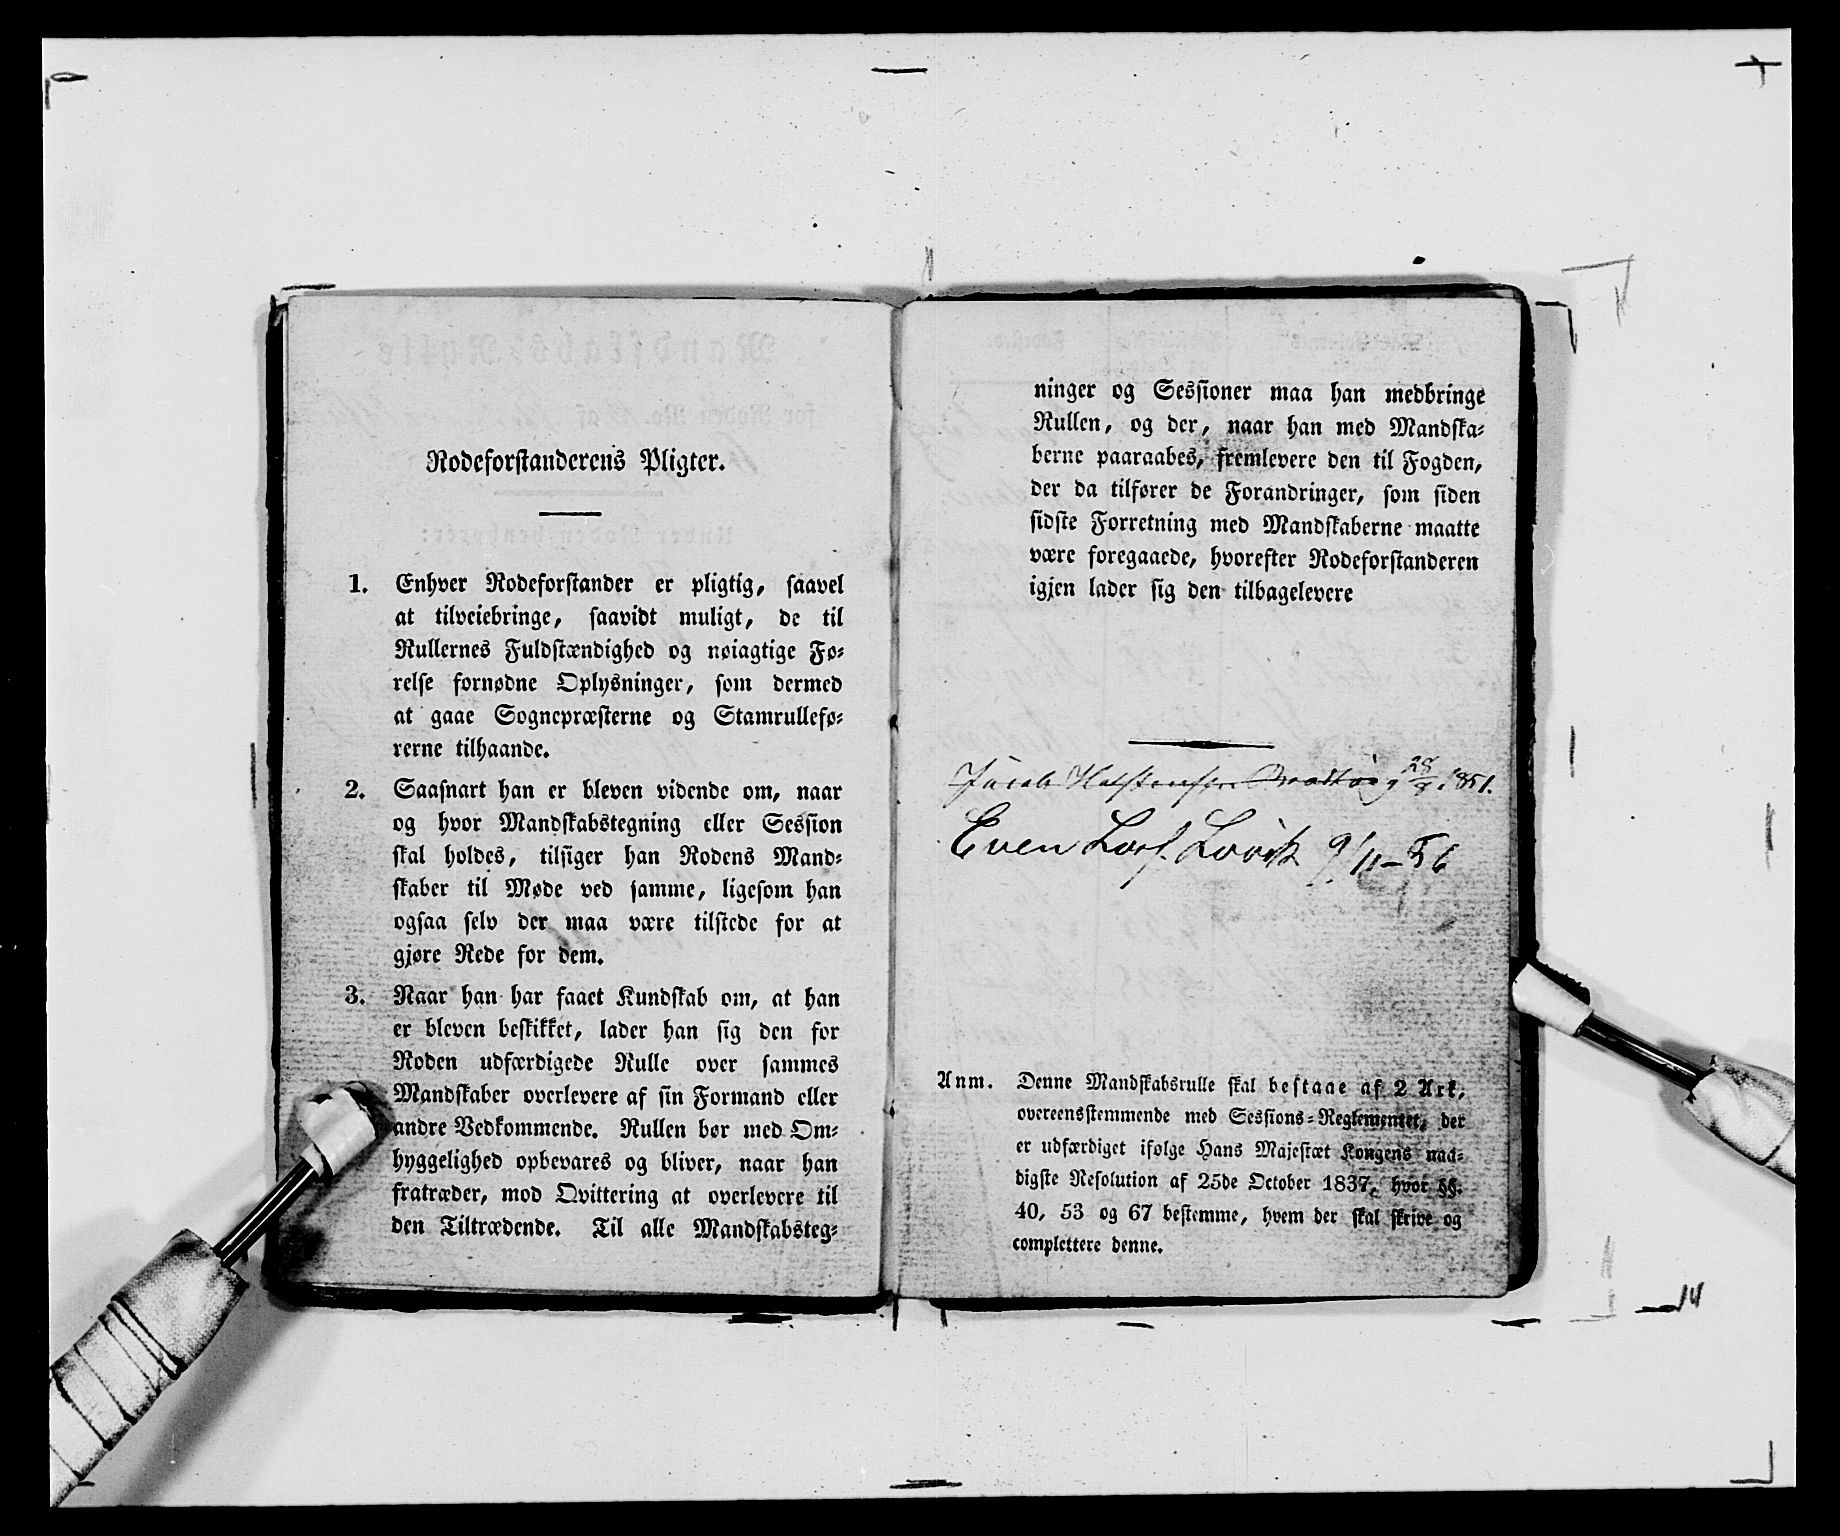 Rodeforstanderens Pligter.
1. Enhver Rodeforstander er pligtig, saavel
at tilveiebringe, saavidt muligt, de til
Rullernes Fuldstændighed og nøiagtige Fø-
relse fornødne Oplysninger, som dermed
at gaae Sognepræsterne og Stamrullefø-
rerne tilhaande.
2. Saasnart han er bleven vidende om, naar
og hvor Mandskabstegning eller Session
skal holdes, tilsiger han Rodens Mand-
skaber til Møde ved samme, ligesom han
ogsaa selv der maa være tilstede for at
gjøre Rede for dem.
3. Naar han har faaet Kundskab om, at han
er bleven beskikket, lader han sig den for
Roden udfærdigede Rulle over sammes
Mandskaber overlevere af sin Formand eller
andre Vedkommende. Rullen bør med Om-
hyggelighed opbevares og bliver, naar han
fratræder, mod Qvittering at overlevere til
den Tiltrædende. Til alle Mandskabsteg-
ninger og Sessioner maa han medbringe
Rullen, og der, naar han med Mandska-
berne paaraabes, fremlevere den til Fogden,
der da tilfører de Forandringer, som siden
sidste Forretning med Mandskaberne maatte
være foregaaede, hvorefter Rodeforstanderen
igjen lader sig den tilbagelevere
Jacob 1851.
Even 9/11-56
Anm. Denne Mandskabsrulle skal bestaae af 2 Ark,
overeensstemmende med Sessions-Reglementet, der
er udfærdiget ifølge Hans Majestæt Kongens naa-
digste Resolution af 25de October 1837, hvor §§.
40, 53 og 67 bestemme, hvem der skal skrive og
complettere denne.
14